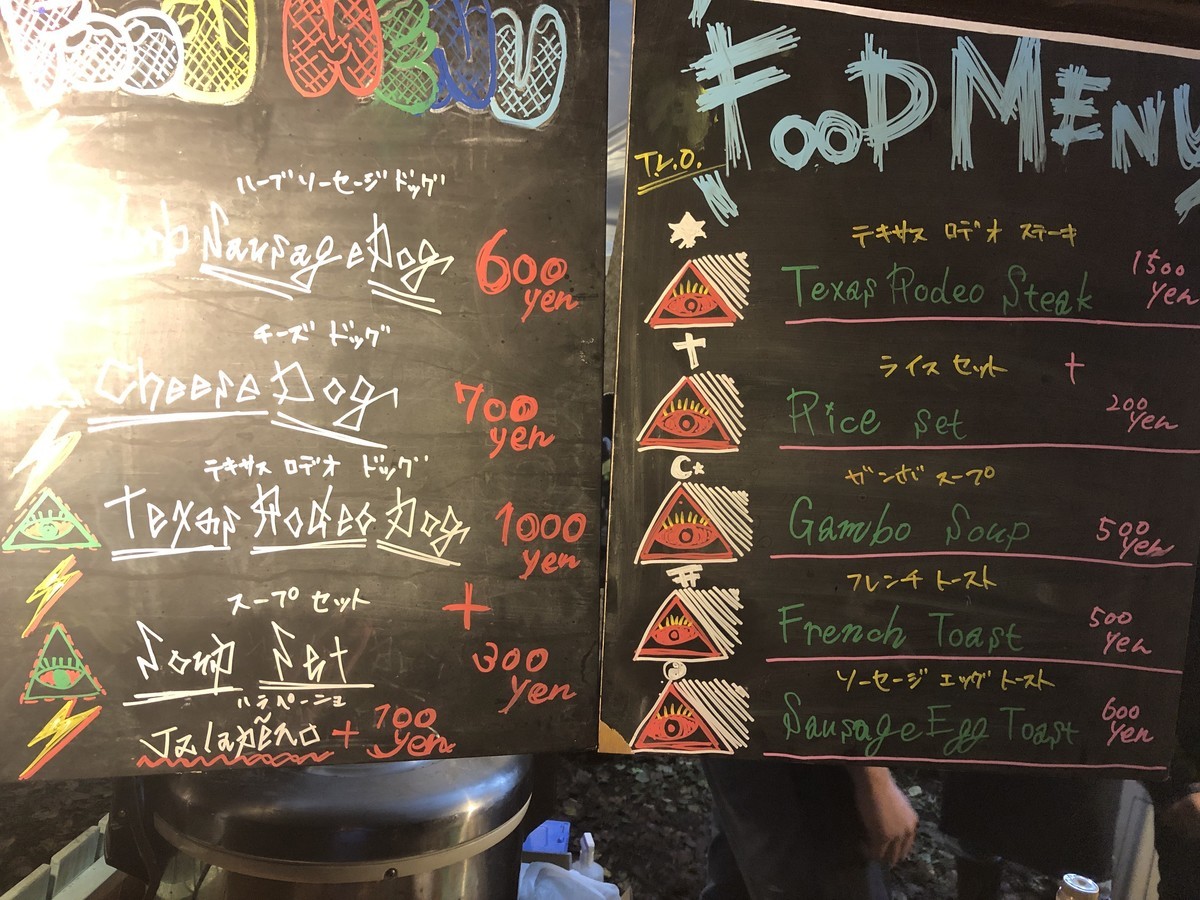 Food Menu
ハーブソーセージドッグ
Herb Sausage Dog 600 yen
チーズ ドッグ
Cheese Dog 700 yen
テキサス ロデオ ドッグ
Texas Rodeo Dog 1000 yen
スープ セット
Soup Set + 300 yen
ハラペーニョ
Jalapeño + 100 yen
FOOD MENU
T.L.O.
テキサス ロデオ ステーキ
Texas Rodeo Steak 1500 yen
ライス セット
Rice set + 200 yen
ガンボ スープ
Gambo Soup 500 yen
フレンチ トースト
French Toast 500 yen
ソーセージ エッグ トースト
Sausage Egg Toast 600 yen